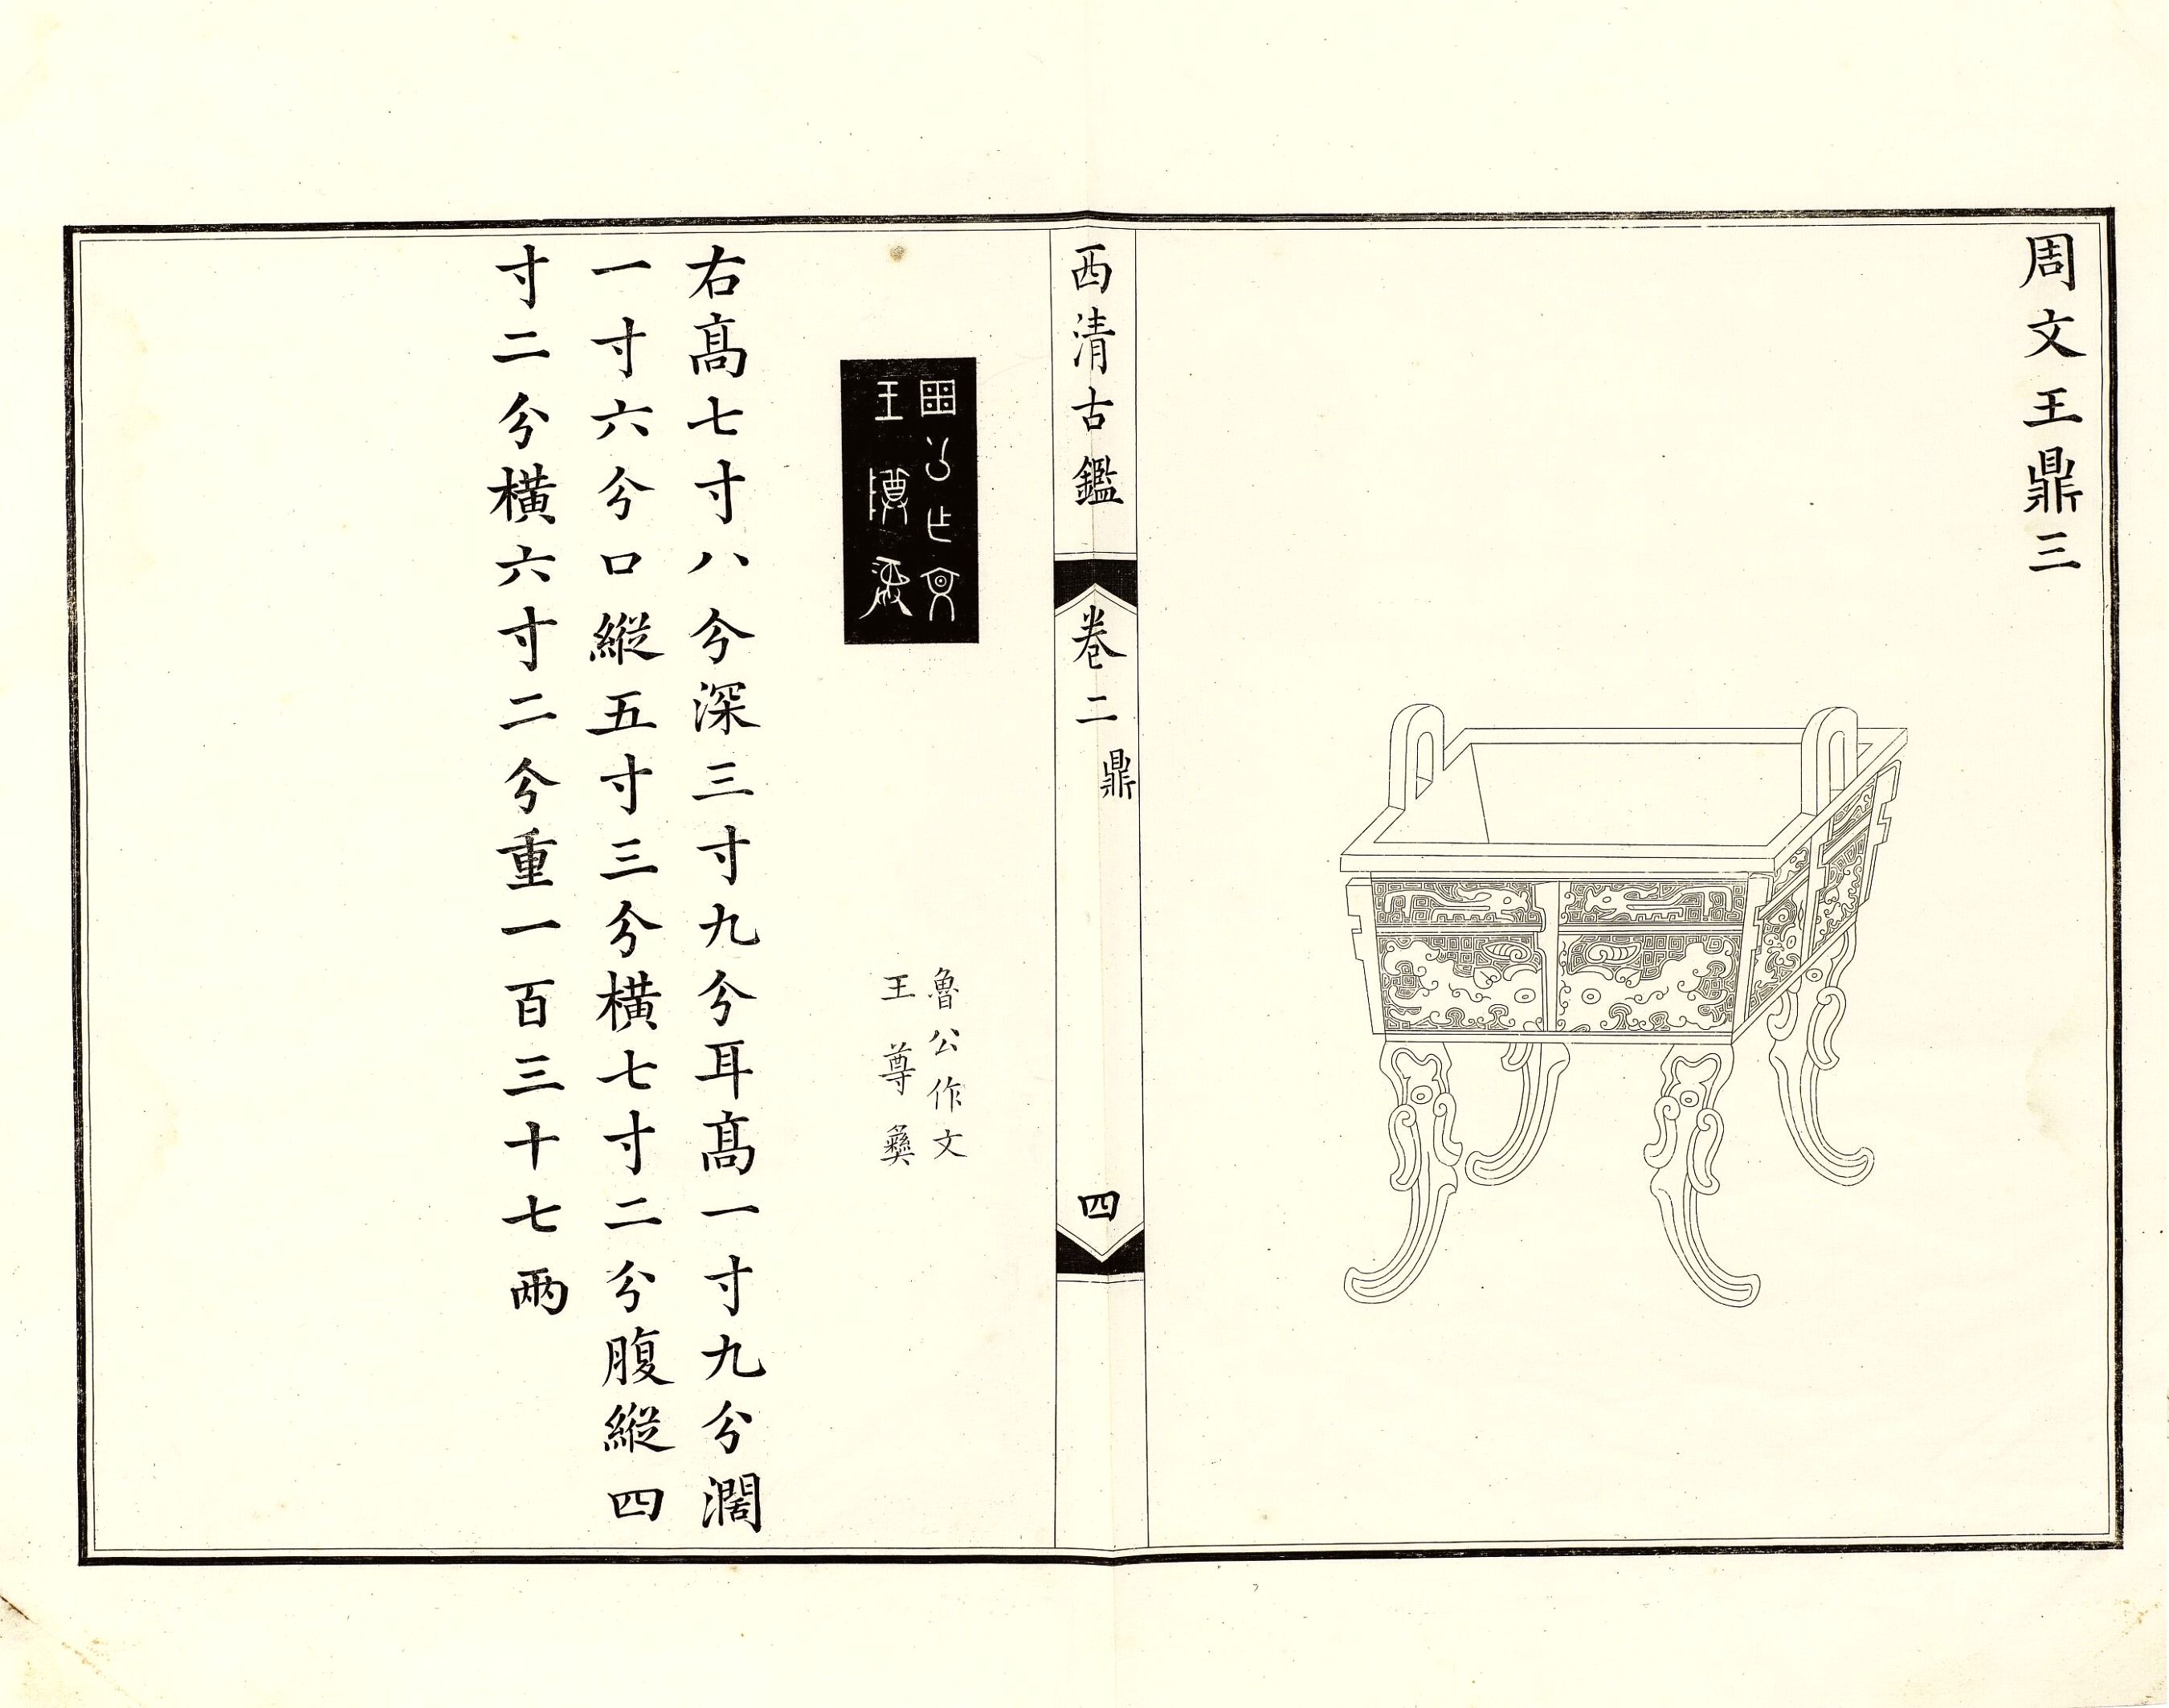 周文王鼎三
西清古鑑
卷二
鼎
四
魯公作文
王尊彝
右高七寸八分深三寸九分耳高一寸九分濶
一寸六分口縱五寸三分橫七寸二分腹縱四
寸二分橫六寸二分重一百三十七兩